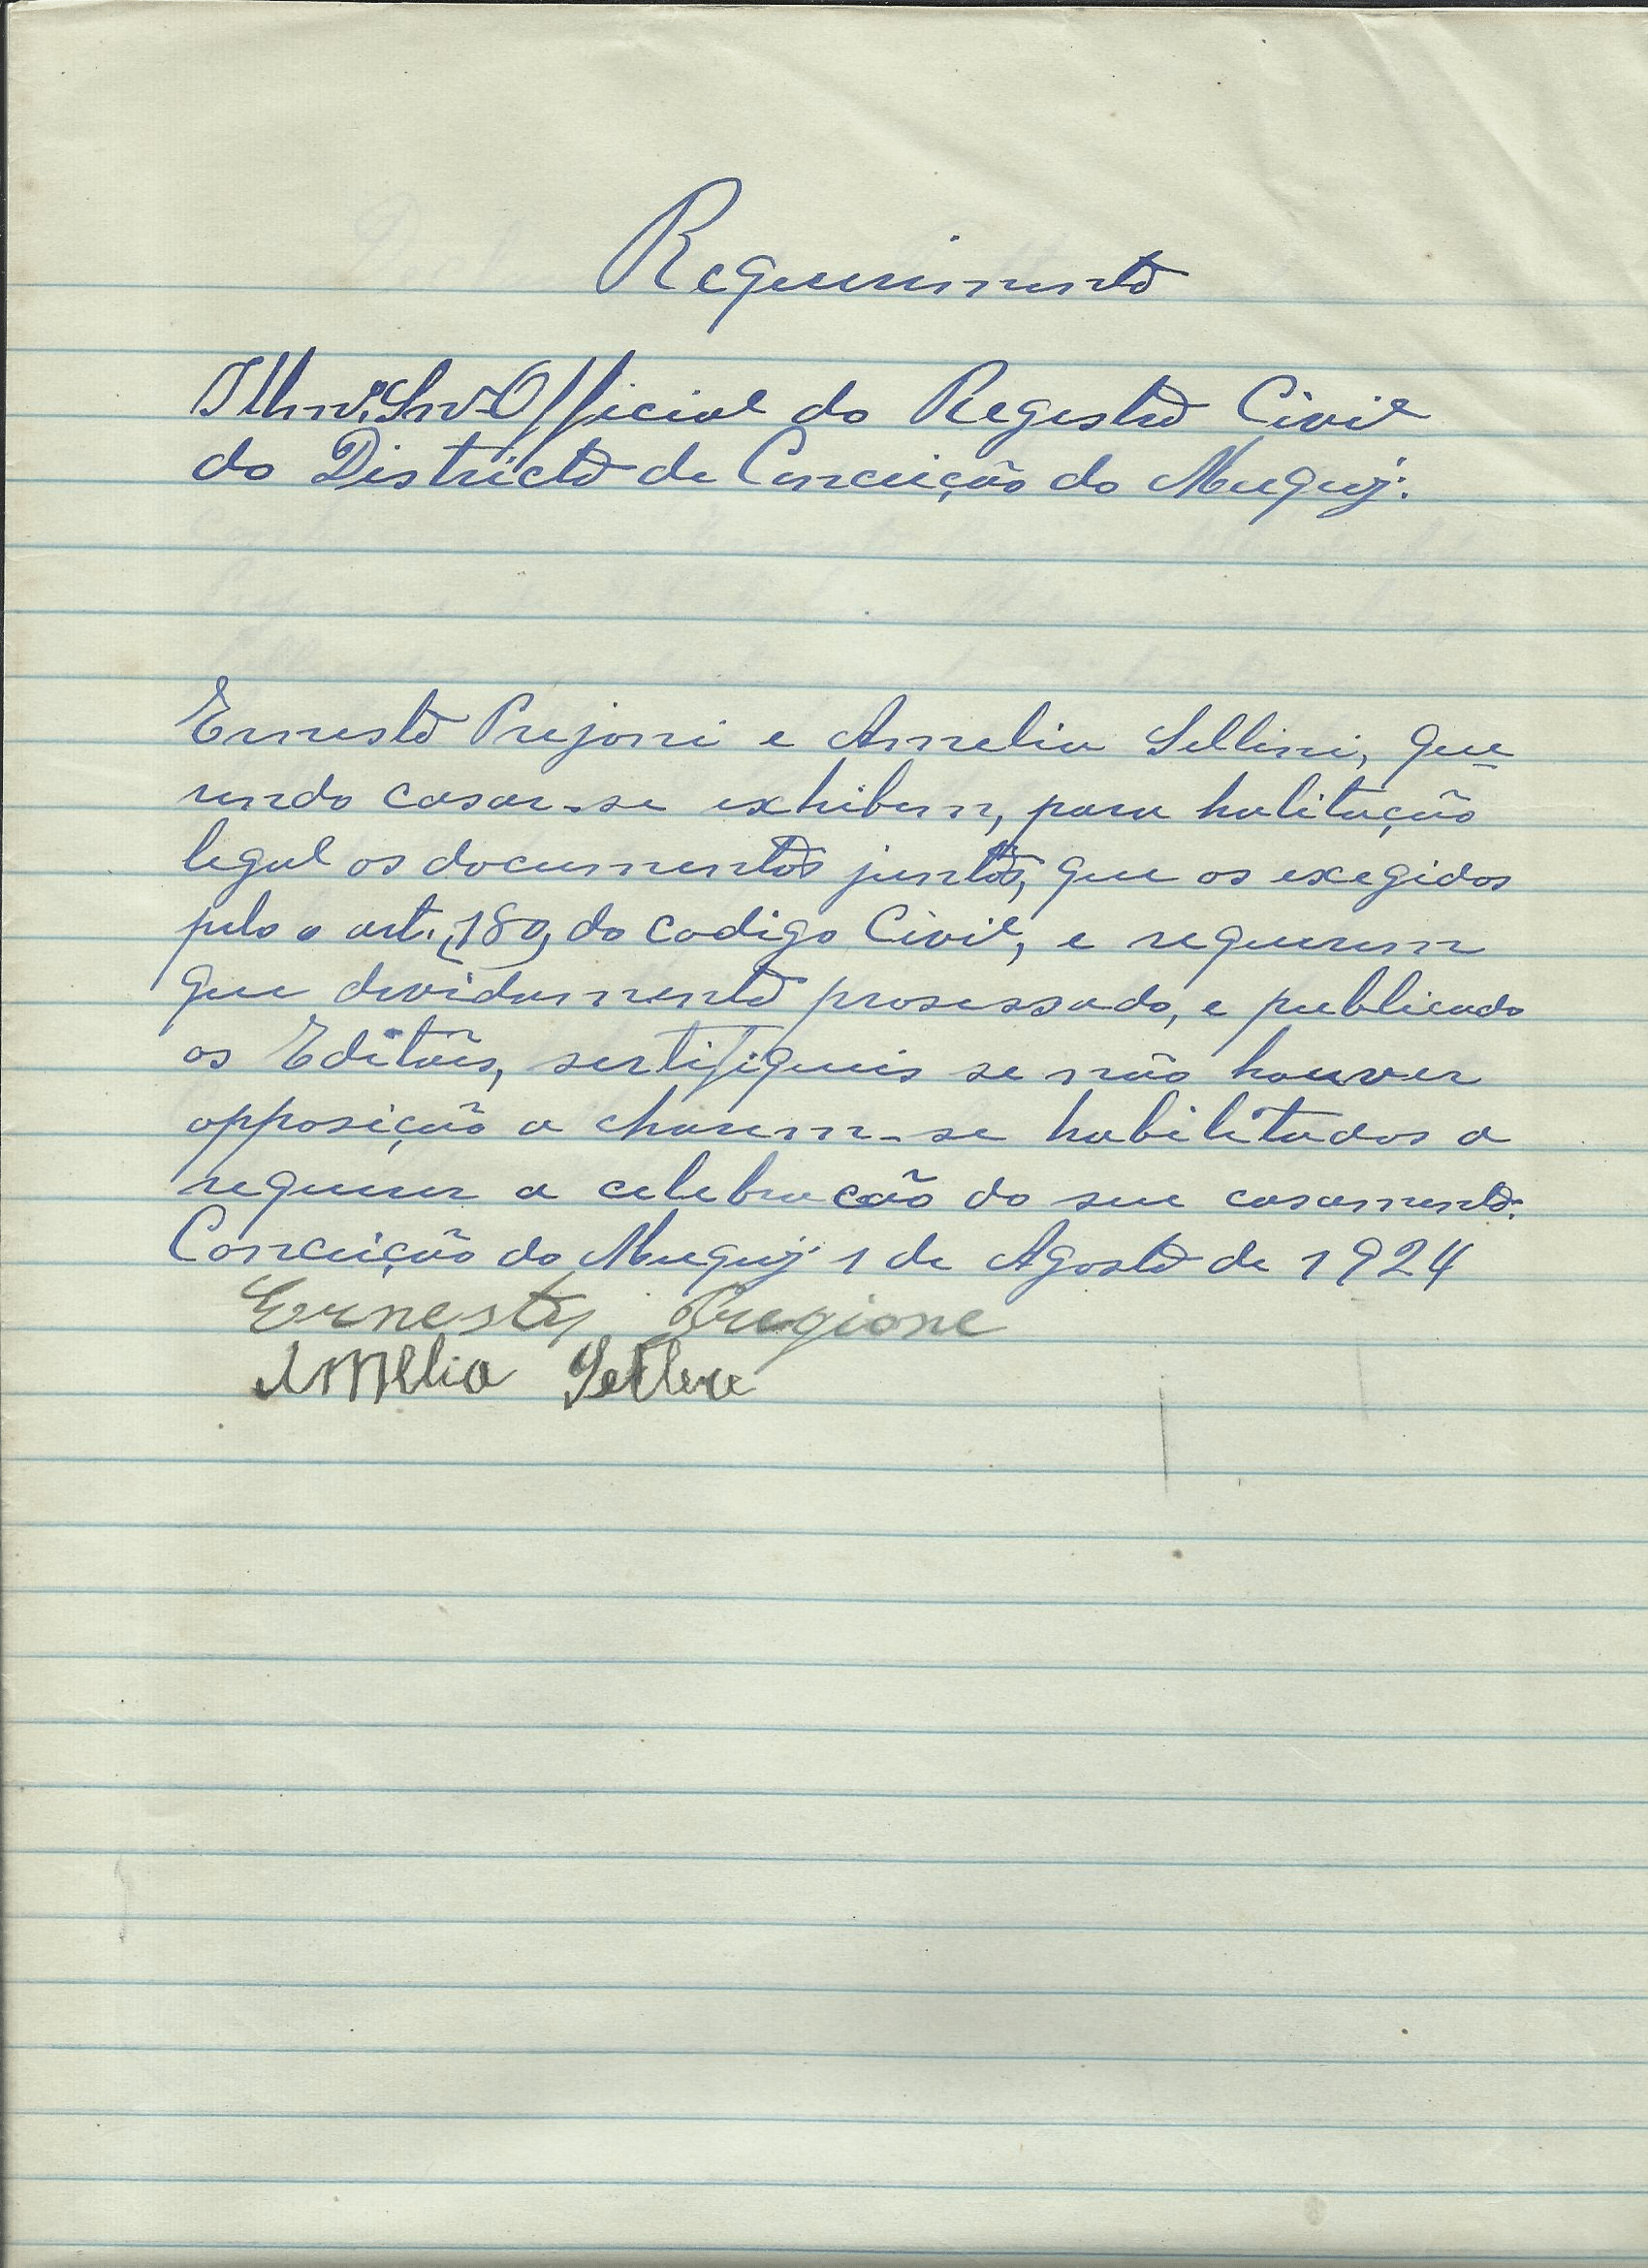 Requerimento
Illmº. Snr. Official do Registro Civil
do Districto de Conceição do Muquy.
Ernesto Prejoni e Amelia Sellini, que=
rendo casar-se exhibem, para halitação
legal os documentos juntos, que os exegidos
pelo o art. 180, do codigo Civil, e requerem
que dividamente prosessado, e publicado
os Editães, sertifiqueis se não houver
opposição a charem-se habilitados a
requerer a celebracão do seu casamento.
Conceição do Muquy 1 de Agosto de 1924
Ernesto Pregione
Amelia